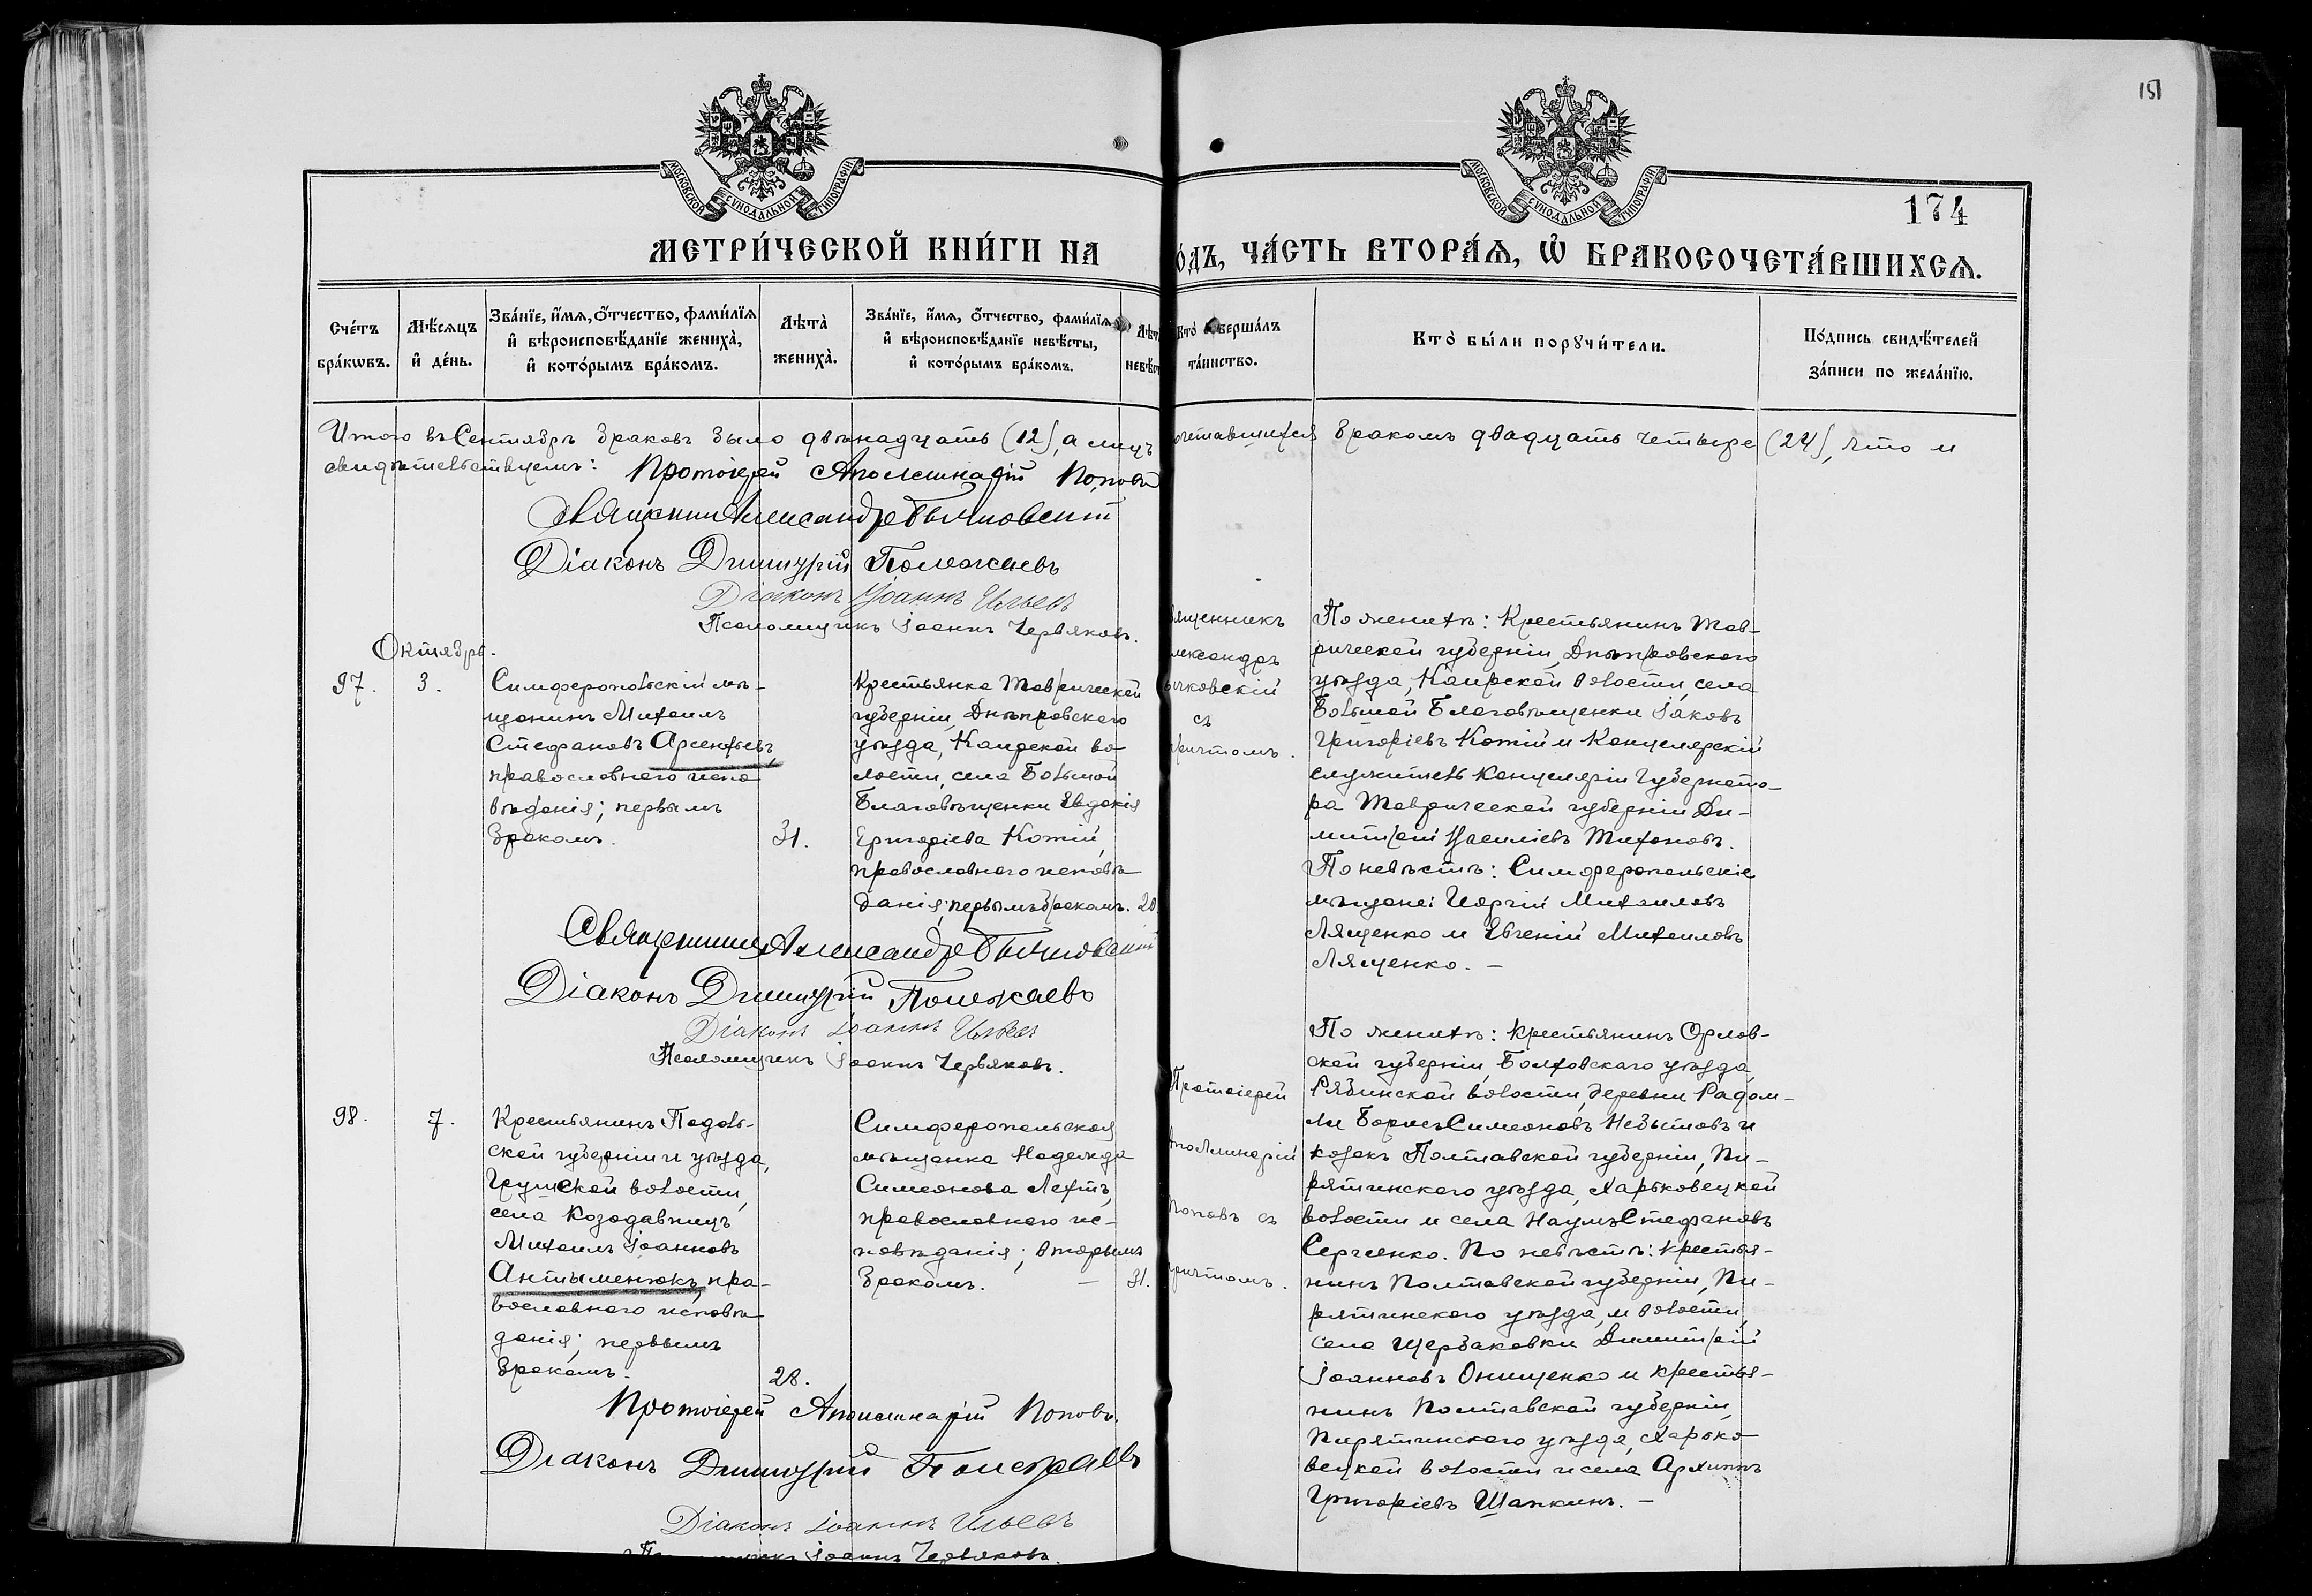 151
МОСКОВСКОЙ СѴНОДАЛЬНОЙ ТИПОГРАФІИ
МОСКОВСКОЙ СѴНОДАЛЬНОЙ ТИПОГРАФІИ
174
МЕТРИ́ЧЕСКОЙ КНИ́ГИ НА
О́ДЪ, ЧА́СТЬ ВТОРА́Ѧ, Ѡ҆ БРАКОСОЧЕТА́ВШИХСѦ.
Сче́тъ бра́кѡвъ.
Мѣ́сяцъ и҆ де́нь.
Зва́нїе, и҆́мѧ, ѻ҆́тчество, фами́лїѧ и҆ вѣроисповѣ́данїе жениха̀, и҆ кото́рымъ бра́комъ.
Лѣта̀ жениха̀.
Зва́нїе, и҆́мѧ, ѻ҆́тчество, фами́лїѧ и҆ вѣроисповѣ́данїе невѣ́сты, и҆ кото́рымъ бра́комъ.
Лѣт невѣст
Кто̀ соверша́лъ та́инство.
Кто̀ бы́ли порꙋчи́тели.
По́дпись свидѣ́телей за́писи по жела́нїю.
Итого въ Сентябрѣ браковъ было двѣнадцать (12), а лицъ
очетавшихся бракомъ двадцать четыре (24), что и
свидѣтельствуемъ: Протоіерей Аполлинарій Поповъ
Священникъ Александръ Бычковскій
Діаконъ Димитрій Полежаевъ
Діаконъ Іоаннъ Ильевъ
Псаломщикъ Іоаннъ Червяковъ.
Октябрь.
97.
3.
Симферопольскій мѣ-
щанинъ Михаилъ
Стефановъ Арсентьевъ,
православнаго испо-
вѣданія; первымъ
бракомъ.
31.
Крестьянка Таврической
губерніи, Днѣпровскаго
уѣзда, Каирской во-
лости, села Большой
Благовѣщенки Евдокія
Григоріева Котій,
православнаго исповѣ-
данія; первымъ бракомъ. 20.
вященникъ
лександръ
ычковскій
съ
причтомъ.
По женихѣ: Крестьянинъ Тав-
рической губерніи, Днѣпровскаго
уѣзда, Каирской волости, села
Большой Благовѣщенки Іаковъ
Григоріевъ Котій и Канцелярскій
служитель Канцеляріи Губернато-
ра Таврической губерніи Ди-
митрій Василіевъ Тихоновъ.
По невѣстѣ: Симферопольскіе
мѣщане: Георгій Михаиловъ
Лященко и Евгеній Михаиловъ
Лященко. –
Священникъ Александръ Бычковскій
Діаконъ Димитрій Полежаевъ
Діаконъ Іоаннъ Ильевъ
Псаломщикъ Іоаннъ Червяковъ.
98.
7.
Крестьянинъ Подоль-
ской губерніи и уѣзда,
волости,
села Козодавинцъ
Михаилъ Іоанновъ
Антыменюкъ, пра-
вославнаго исповѣ-
данія; первымъ
бракомъ.
28.
Симферопольская
мѣщанка Надежда
Симеонова Лехтъ,
православнаго ис-
повѣданія; вторымъ
бракомъ. – 31.
Протоіерей
Аполлинарій
Поповъ съ
причтомъ.
По женихѣ: крестьянинъ Орлов-
ской губерніи, Болховскаго уѣзда,
Рябинской волости, деревни Радом-
ли Борисъ Симеоновъ и
козакъ Полтавской губерніи, Пи-
рятинскаго уѣзда, Харьковецкой
волости и села Наумъ Стефановъ
Сергіенко. По невѣстѣ: крестья-
нинъ Полтавской губерніи, Пи-
рятинскаго уѣзда, и волости,
села Щербаковки Димитрій
Іоанновъ Онищенко и крестья-
нинъ Полтавской губерніи,
Пирятинскаго уѣзда, Харько-
вецкой волости и села Архиппъ
Григоріевъ Шапкинъ. –
Протоіерей Аполлинарій Поповъ.
Діаконъ Димитрій Полежаевъ
Діаконъ Іоаннъ Ильевъ
Псаломщикъ Іоаннъ Червяковъ.